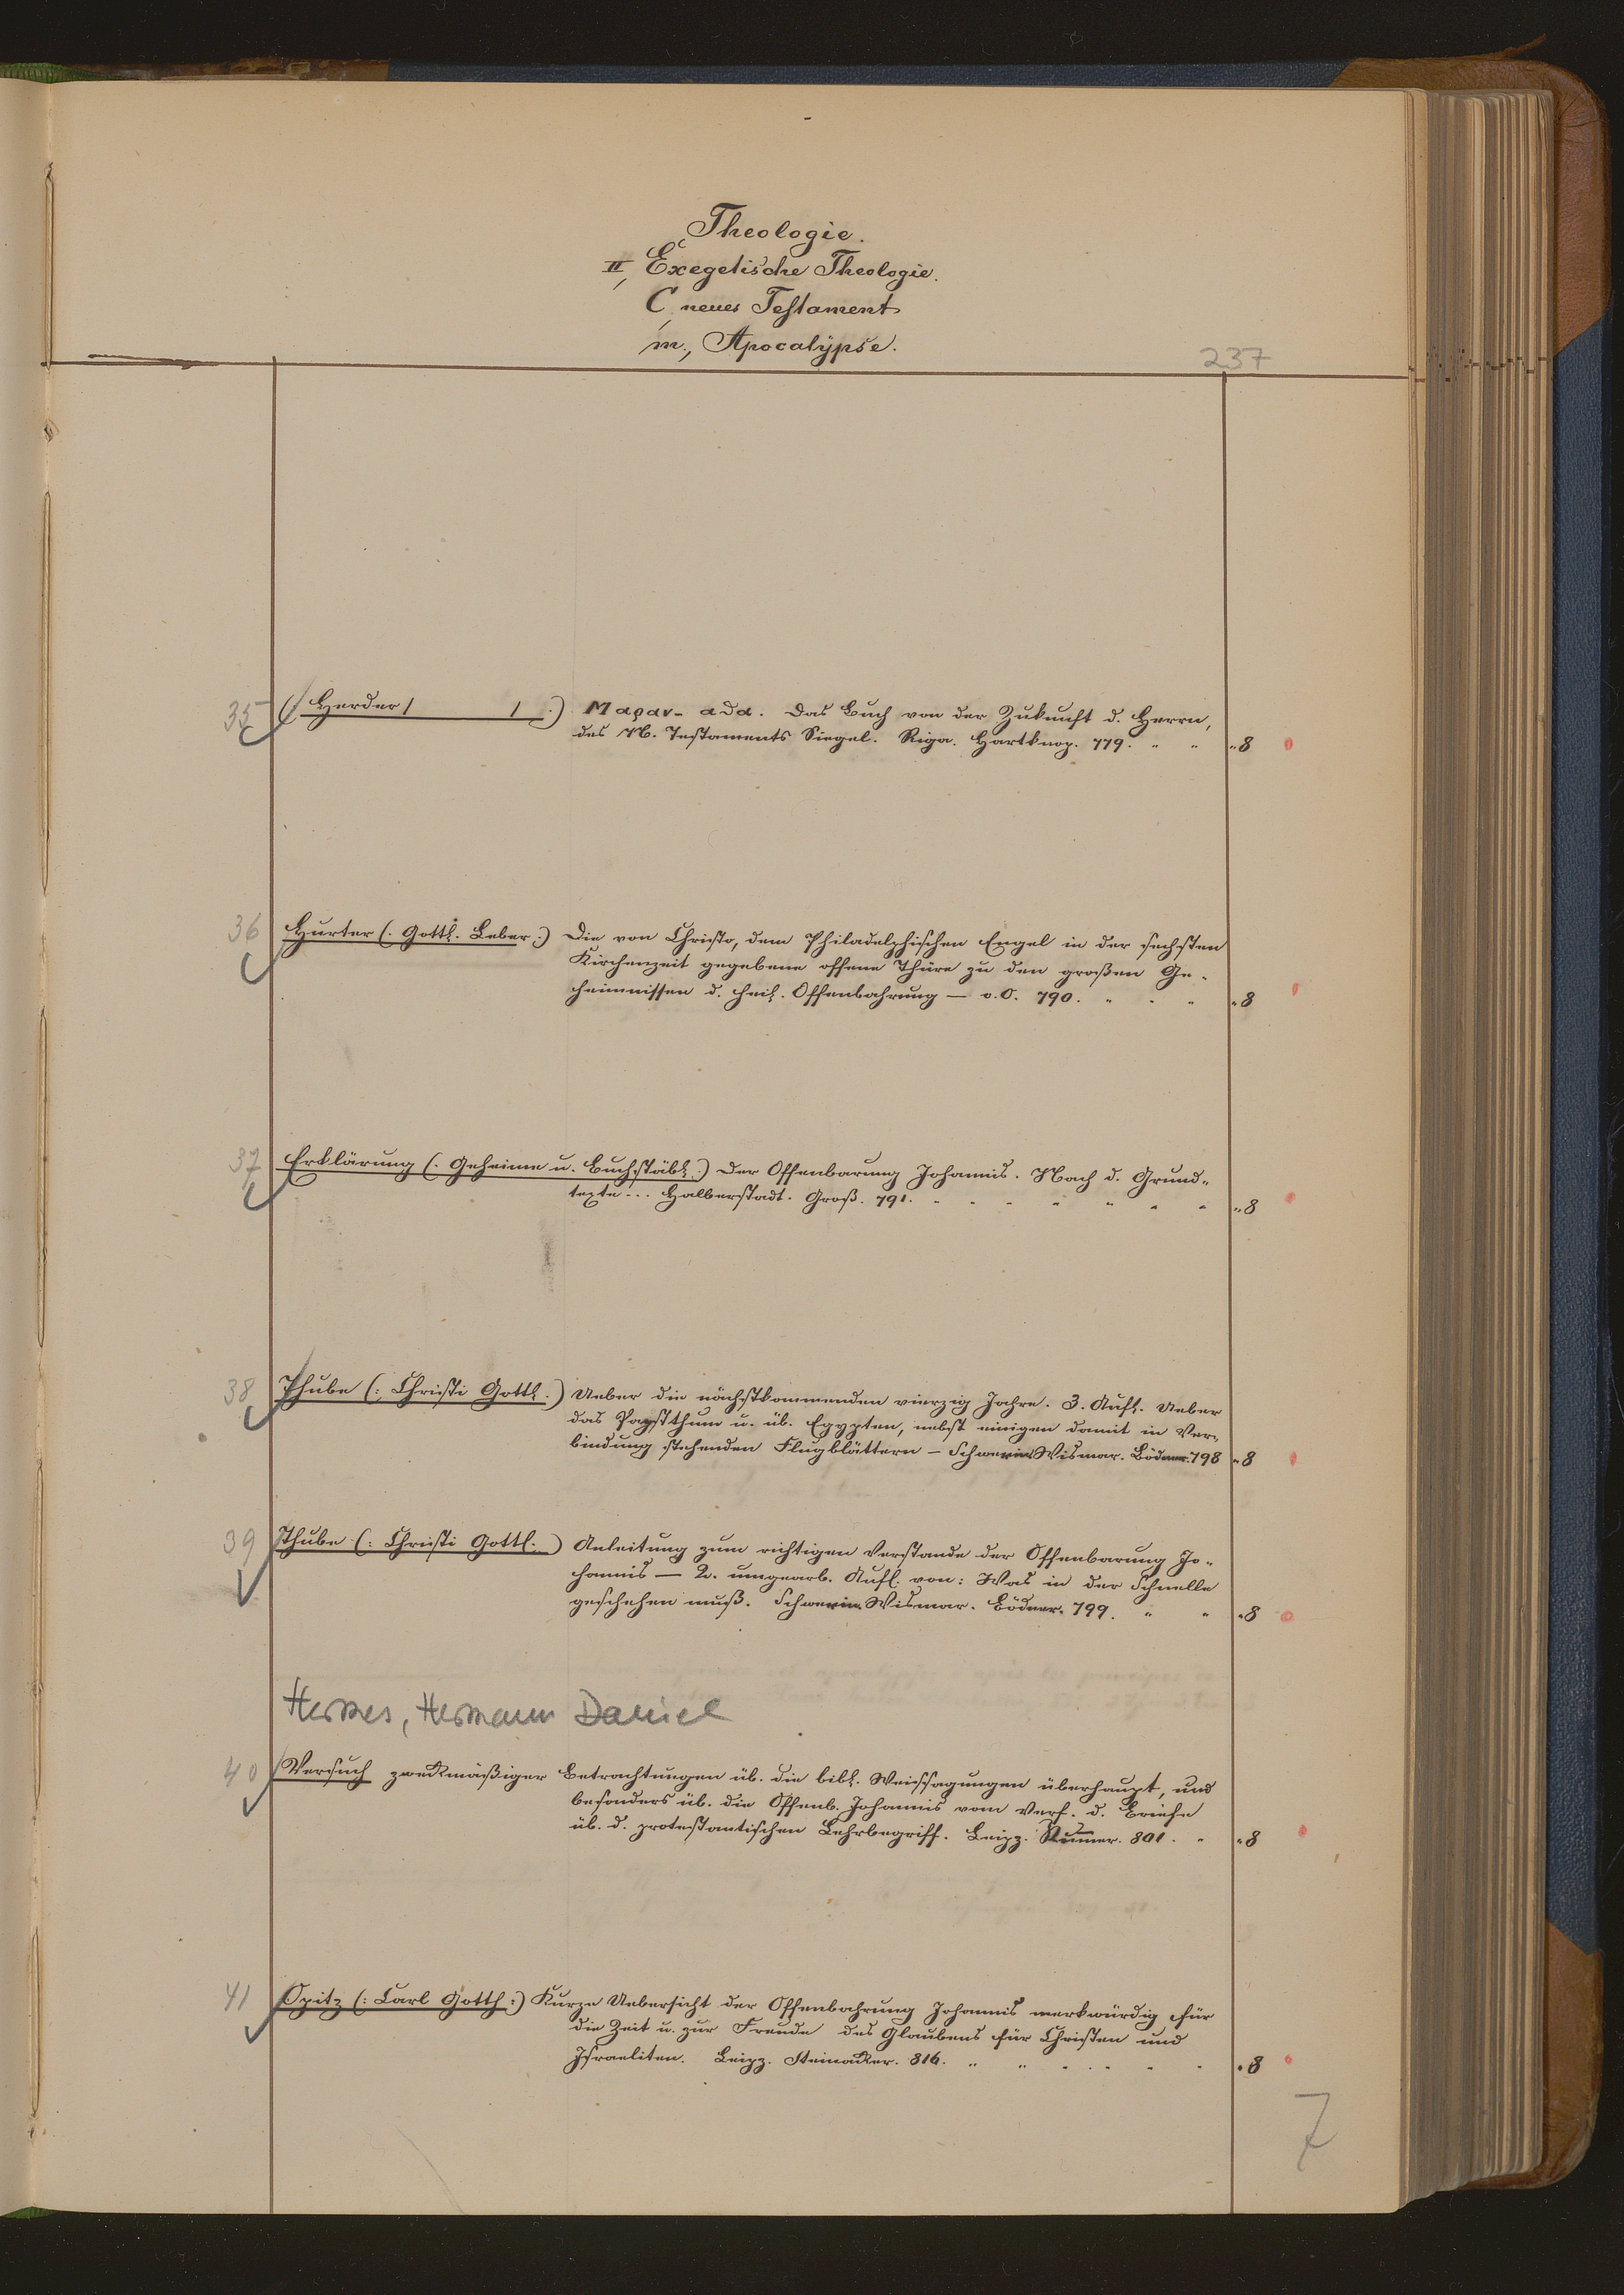 Theologie.
II, Exegetische Theologie.
C, neues Testament
m., Apocalÿpse.
237
35 (Herder / / .) Μαραν-αδα. Das Buch von der Zukunft d. Herrn,
des N. Testaments Siegel. Riga. Hartknop. 779. " " "8
36 Hurter (: Gottl. Leber.:) Die von Christo, dem Philadelphischen Engel in der sechsten
Kirchenzeit gegebene offene Thüre zu den großen Ge-
heimnissen d. heil. Offenbahrung — o.O. 790. " " " "8
37 Erklärung (: Geheime u. Buchstäbl.:) der Offenbarung Johannis. Nach d. Grund-
texte ... Halberstadt. Groß. 791. " " " " " " " "8
38 Thube (: Christi Gottl.:) Ueber die nächstkommenden vierzig Jahre. 3. Aufl. Ueber
das Papstthum u. üb. Egypten, nebst einigen damit in Ver-
bindung stehenden Flugblättern — Schwerin Wismar. Bödner. 798 "8
39 Thube (: Christi Gottl.:) Anleitung zum richtigen Verstande der Offenbarung Jo-
hannis — 2. umgearb. Aufl. von: Was in der Schnelle
geschehen muß. Schwerin. Wismar. Bödner. 799. " " "8
Hermes, Hermann Daniel
40 Versuch zweckmäßiger Betrachtungen üb. die bibl. Weissagungen überhaupt, und
besonders üb. die Offenb. Johannis vom Verf. d. Briefe
üb. d. protestantischen Lehrbegriff. Leipz. 801. " "8
41 Opitz (: Carl Gotth:) Kurze Uebersicht der Offenbahrung Johannis merkwürdig für
die Zeit u. zur Freude des Glaubens für Christen und
Israeliten. Leipz. Steinacker. 816. " " " " " " "8
7